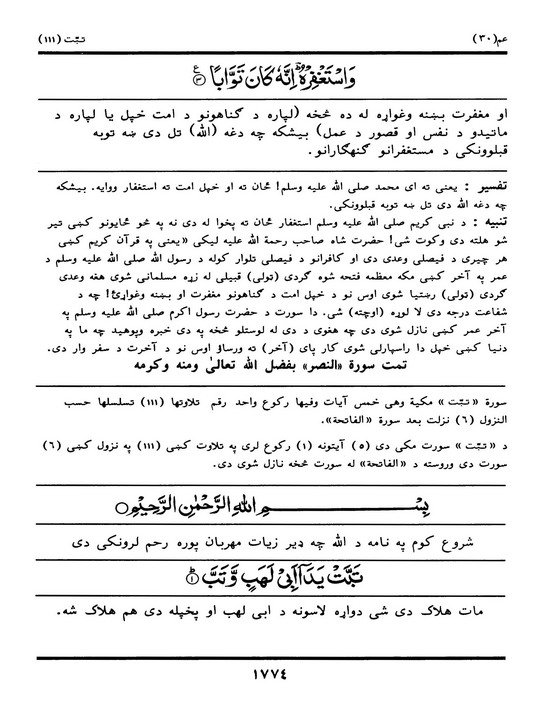 عم(٣٠) تبّت (١١١)
وَاسْتَغْفِرْهُ ؕ اِنَّهٗ كَانَ تَوَّابًا ﴿٣﴾
او مغفرت بښنه وغواړه له ده څخه (لپاره د گناهونو د امت خپل يا لپاره د
ماتيدو د نفس او قصور د عمل) بيشكه چه دغه (الله) تل دى ښه توبه
قبلوونكى د مستغفرانو گنهگارانو.
تفسير : يعنى ته اى محمد صلى الله عليه وسلم! ځان ته او خپل امت ته استغفار ووايه. بيشكه
چه دغه الله دى تل ښه توبه قبلوونكى.
تنبيه : د نبى كريم صلى الله عليه وسلم استغفار ځان ته پخوا له دى نه په څو ځايونو كښى تير
شو هلته دى وكوت شى! حضرت شاه صاحب رحمة الله عليه ليكى «يعنى په قرآن كريم كښى
هر چيرى د فيصلى وعدى دى او كافرانو د فيصلى تلوار كوله د رسول الله صلى الله عليه وسلم د
عمر په آخر كښى مكه معظمه فتحه شوه گردى (تولى) قبيلى له زړه مسلمانى شوى هغه وعدى
گردى (تولى) رښتيا شوى اوس نو د خپل امت د گناهونو مغفرت او بښنه وغواړئ! چه د
شفاعت درجه دى لا لوړه (اوچته) شى. دا سورت د حضرت رسول اكرم صلى الله عليه وسلم په
آخر عمر كښى نازل شوى دى چه هغوى د دى له لوستلو څخه په دى خبره وپوهيد چه ما په
دنيا كښى خپل دا راسپارلى شوى كار پاى (آخر) ته ورساؤ اوس نو د آخرت د سفر وار دى.
تمت سورة «النصر» بفضل الله تعالىٰ ومنه وكرمه
سورة « تبّت » مكية وهى خمس آيات وفيها ركوع واحد رقم تلاوتها (١١١) تسلسلها حسب
النزول (٦) نزلت بعد سورة «الفاتحة».
د « تبّت » سورت مكى دى (٥) آيتونه (١) ركوع لرى په تلاوت كښى (١١١) په نزول كښى (٦)
سورت دى وروسته د «الفاتحة» له سورت څخه نازل شوى دى.
بِسْمِ اللهِ الرَّحْمٰنِ الرَّحِيْمِ ○
شروع كوم په نامه د الله چه ډير زيات مهربان پوره رحم لرونكى دى
تَبَّتْ يَدَاۤ اَبِىْ لَهَبٍ وَّتَبَّ ﴿١﴾
مات هلاک دى شى دواړه لاسونه د ابى لهب او پخپله دى هم هلاک شه.
١٧٧٤